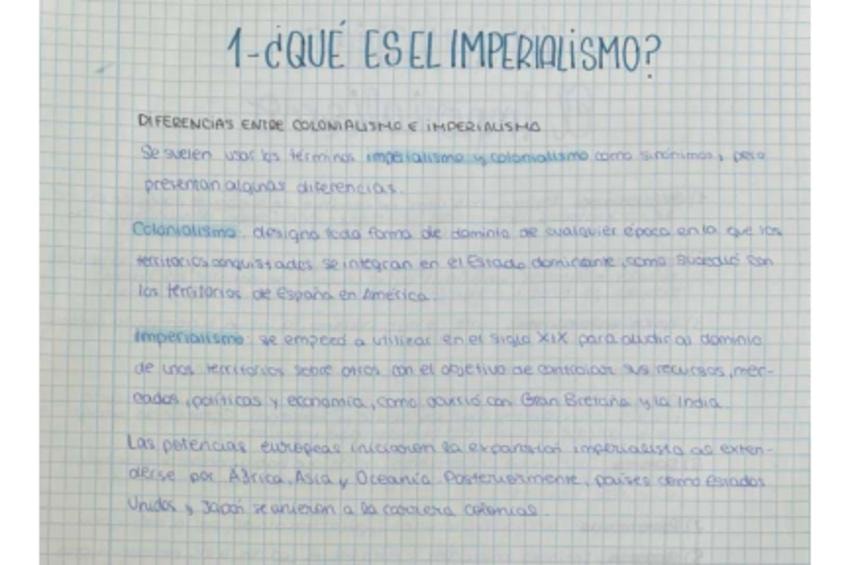 1-¿QUÉ ES EL IMPERIALISMO?
DIFERENCIAS ENTRE COLONIALISMO E IMPERIALISMO
Se suelen usar los términos imperialismo y colonialismo como sinónimos, pero
presentan algunas diferencias.
Colonialismo: designa toda forma de dominio de cualquier época en la que los
territorios conquistados se integran en el Estado dominante, como sucedió con
los territorios de España en América.
Imperialismo: se empezó a utilizar en el siglo XIX para aludir al dominio
de unos territorios sobre otros con el objetivo de controlar sus recursos, mer-
cados, políticas y economía, como ocurrió con Gran Bretaña y la India.
Las potencias europeas iniciaron la expansión imperialista al exten-
derse por África, Asia y Oceanía. Posteriormente, países como Estados
Unidos y Japón se unieron a la carrera colonial.